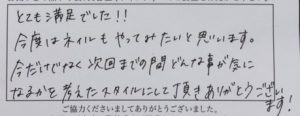 とても満足でした!!
今度はネイルもやってみたいと思います。
今だけでなく次回までの間どんな事が気に
なるかを考えたスタイルにして頂きありがとうござい
ます!
ご協力くださいましてありがとうございました。